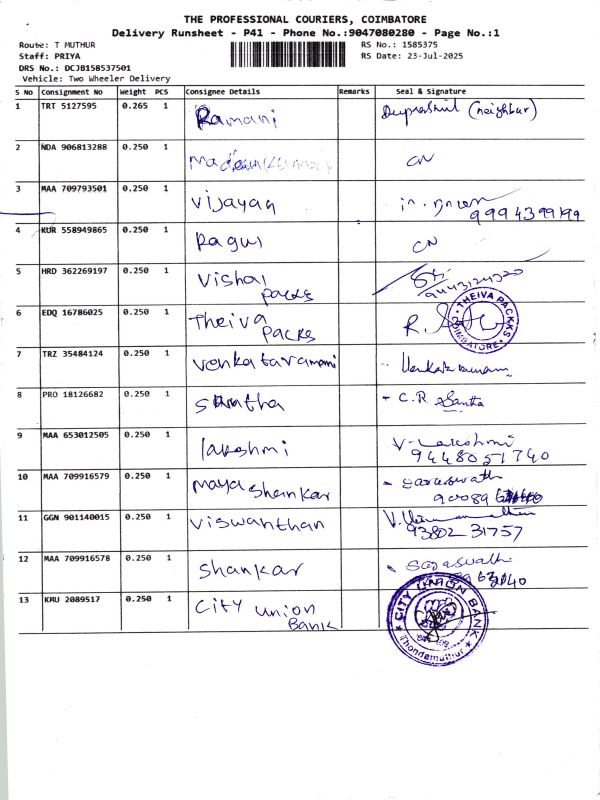 THE PROFESSIONAL COURIERS, COIMBATORE
Delivery Runsheet - P41 - Phone No.:9047080280 - Page No.:1
Route: T MUTHUR RS No.: 1585375
Staff: PRIYA RS Date: 23-Jul-2025
DRS No.: DCJB158537501
Vehicle: Two Wheeler Delivery
S No Consignment No Weight PCS Consignee Details Remarks Seal & Signature
1 TRT 5127595 0.265 1 Ramani (neighbur)
2 NDA 906813288 0.250 1 CN
3 MAA 709793501 0.250 1 Vijayan
9994399199
4 KUR 558949865 0.250 1 Ragul CN
5 HRD 362269197 0.250 1 Vishal
Packs 9443124320
6 EDQ 16786025 0.250 1 Theiva
Packs R. THEIVA PACKKS COIMBATORE
7 TRZ 35484124 0.250 1 Venkataramani
8 PRO 18126682 0.250 1 Santha - C.R Santha
9 MAA 653012505 0.250 1 lakshmi V-Lakshmi
9448051740
10 MAA 709916579 0.250 1 Maya Shankar - Saraswathi
90089
11 GGN 901140015 0.250 1 Viswanthan V.
93802 31757
12 MAA 709916578 0.250 1 Shankar Saraswathi
13 KMU 2089517 0.250 1 City Union
Bank CITY UNION BANK Thondamuthur